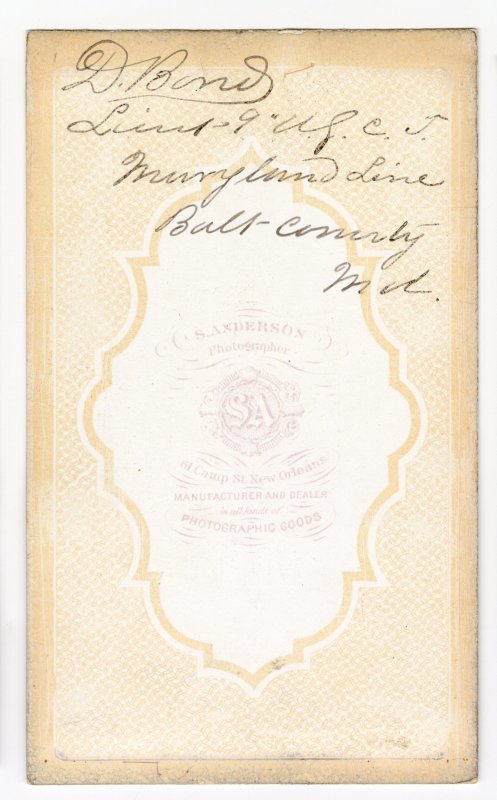 D. Bond
Lieut 9" U.S. C. T.
Maryland Line
Balt- County
Md.
S. ANDERSON
Photographer
SA
61 Camp St. New Orleans
MANUFACTURER AND DEALER
in all kinds of
PHOTOGRAPHIC GOODS